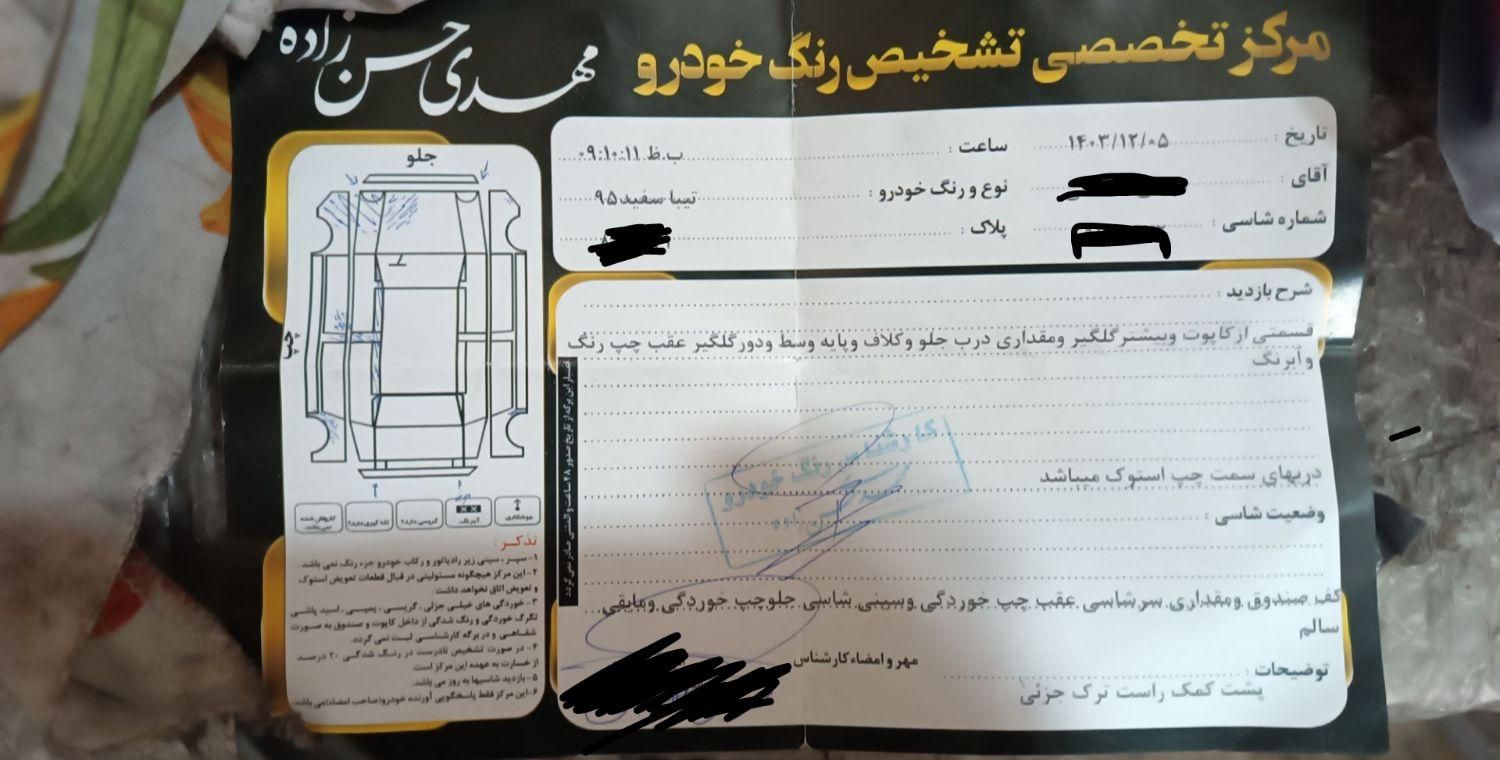 مرکز تخصصی تشخیص رنگ خودرو
مهدی حسن زاده
تاریخ : ۱۴۰۳/۱۲/۰۵
ساعت : ۰۹:۱۰:۱۱ ب.ظ
آقای :
نوع و رنگ خودرو : تیبا سفید ۹۵
شماره شاسی :
پلاک :
شرح بازدید :
قسمتی ازکاپوت وبیشترگلگیر ومقداری درب جلو وکلاف وپایه وسط ودورگلگیر عقب چپ رنگ
وآبرنگ
دربهای سمت چپ استوک میباشد
وضعیت شاسی :
کف صندوق ومقداری سرشاسی عقب چپ خوردگی وسینی شاسی جلوچپ خوردگی ومابقی
سالم
توضیحات :
پشت کمک راست ترک جزئی
مهر و امضاء کارشناس
کارشناس رنگ خودرو
اعتبار این برگه از تاریخ صدور ۴۸ ساعت و المثنی صادر نمی گردد
جلو
چپ
جوشکاری
آبرنگ
گریسی دارد؟
کارواش شده نمی باشد
تذکر :
۱- سپر ، سینی زیر رادیاتور و رکاب خودرو جزء رنگ نمی باشد.
۲- این مرکز هیچگونه مسئولیتی در قبال قطعات تعویض استوک
و تعویض اتاق نخواهد داشت .
۳- خوردگی های خیلی جزئی، گریسی ، پمپی ، اسید پاشی
تگرگ خوردگی و رنگ شدگی از داخل کاپوت و صندوق به صورت
شفاهی و در برگه کارشناسی لیست نمی گردد.
۴- در صورت تشخیص نادرست در رنگ شدگی ۲۰ درصد
از خسارت به عهده این مرکز است.
۵- بازدید شاسیها به روز می باشد.
۶- این مرکز فقط پاسخگویی آورنده خودرو(صاحب امضاء)می باشد.